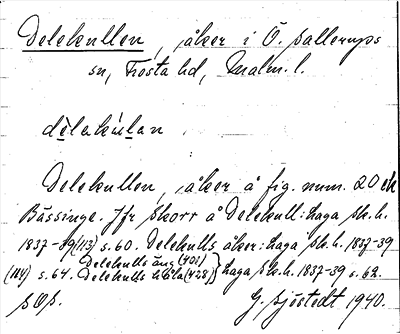 Delekullen, åker i Ö. Sallerups
sn, Frosta hd, Malm. l.
dèlakúlan
Delekullen, åker å fig. num. 20 ek
Bässinge. Jfr Skorr å Delekull: haga sk.h.
1837-39 (113) s. 60. Delekulls åker: haga sk.h. 1837-39
(114) s. 64. Delekulls äng (401) } haga sk.h. 1837-39 s. 62.
Delekulls (428)
G. Sjöstedt 1940.